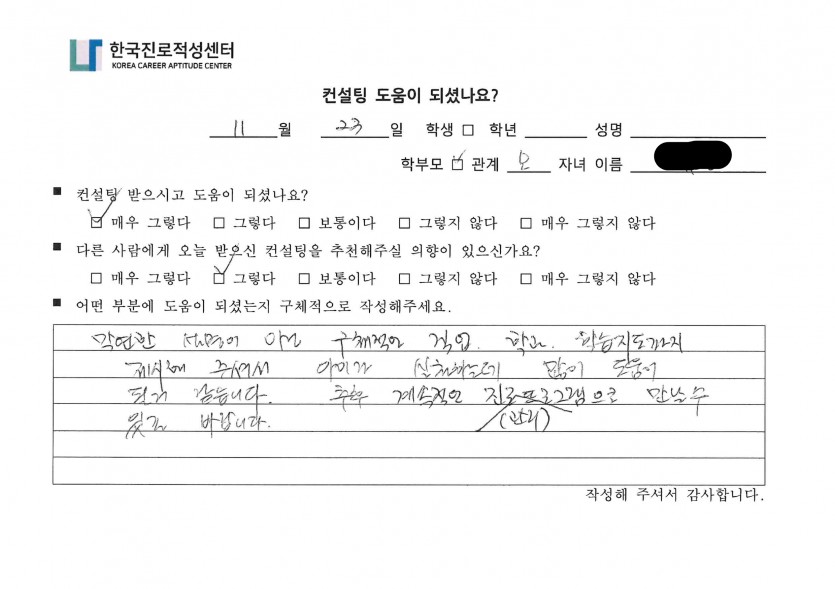 한국진로적성센터
KOREA CAREER APTITUDE CENTER
컨설팅 도움이 되셨나요?
11 월 23 일 학생 □ 학년 성명
학부모 ☑ 관계 모 자녀 이름
■ 컨설팅 받으시고 도움이 되셨나요?
☑ 매우 그렇다 □ 그렇다 □ 보통이다 □ 그렇지 않다 □ 매우 그렇지 않다
■ 다른 사람에게 오늘 받으신 컨설팅을 추천해주실 의향이 있으신가요?
□ 매우 그렇다 ☑ 그렇다 □ 보통이다 □ 그렇지 않다 □ 매우 그렇지 않다
■ 어떤 부분에 도움이 되셨는지 구체적으로 작성해주세요.
막연한 설명이 아닌 구체적인 직업. 학과. 학습지도까지
제시해 주셔서 아이가 실천하는데 많이 도움이
된거 같습니다. 추후 계속적인 진로프로그램으로 만날수
(관리)
있길 바랍니다.
작성해 주셔서 감사합니다.